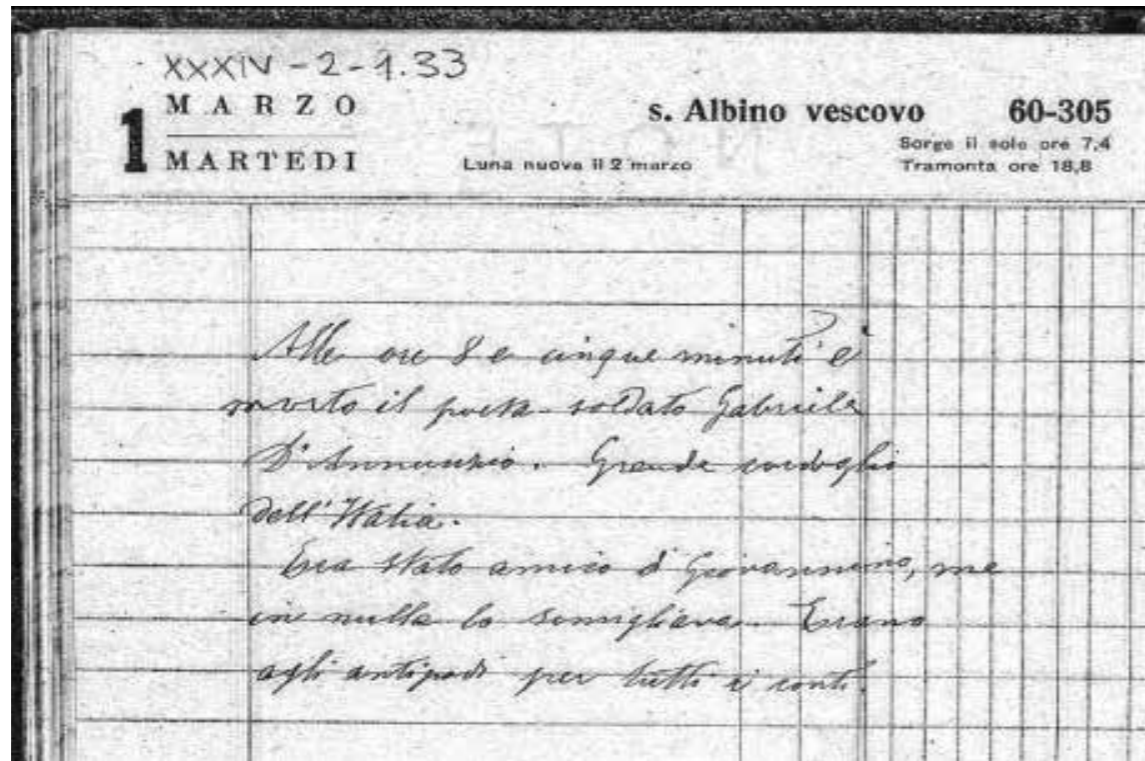 XXXIV-2-1.33
1 MARZO
MARTEDI
s. Albino vescovo 60-305
Luna nuova il 2 marzo
Sorge il sole ore 7,4
Tramonta ore 18,8
Alle ore 8 e cinque minuti è
morto il poeta-soldato Gabriele
D'Annunzio. Grande cordoglio
dell'Italia.
Era stato amico di Giovannino, ma
in nulla lo somigliava. Erano
agli antipodi per tutti i conti.